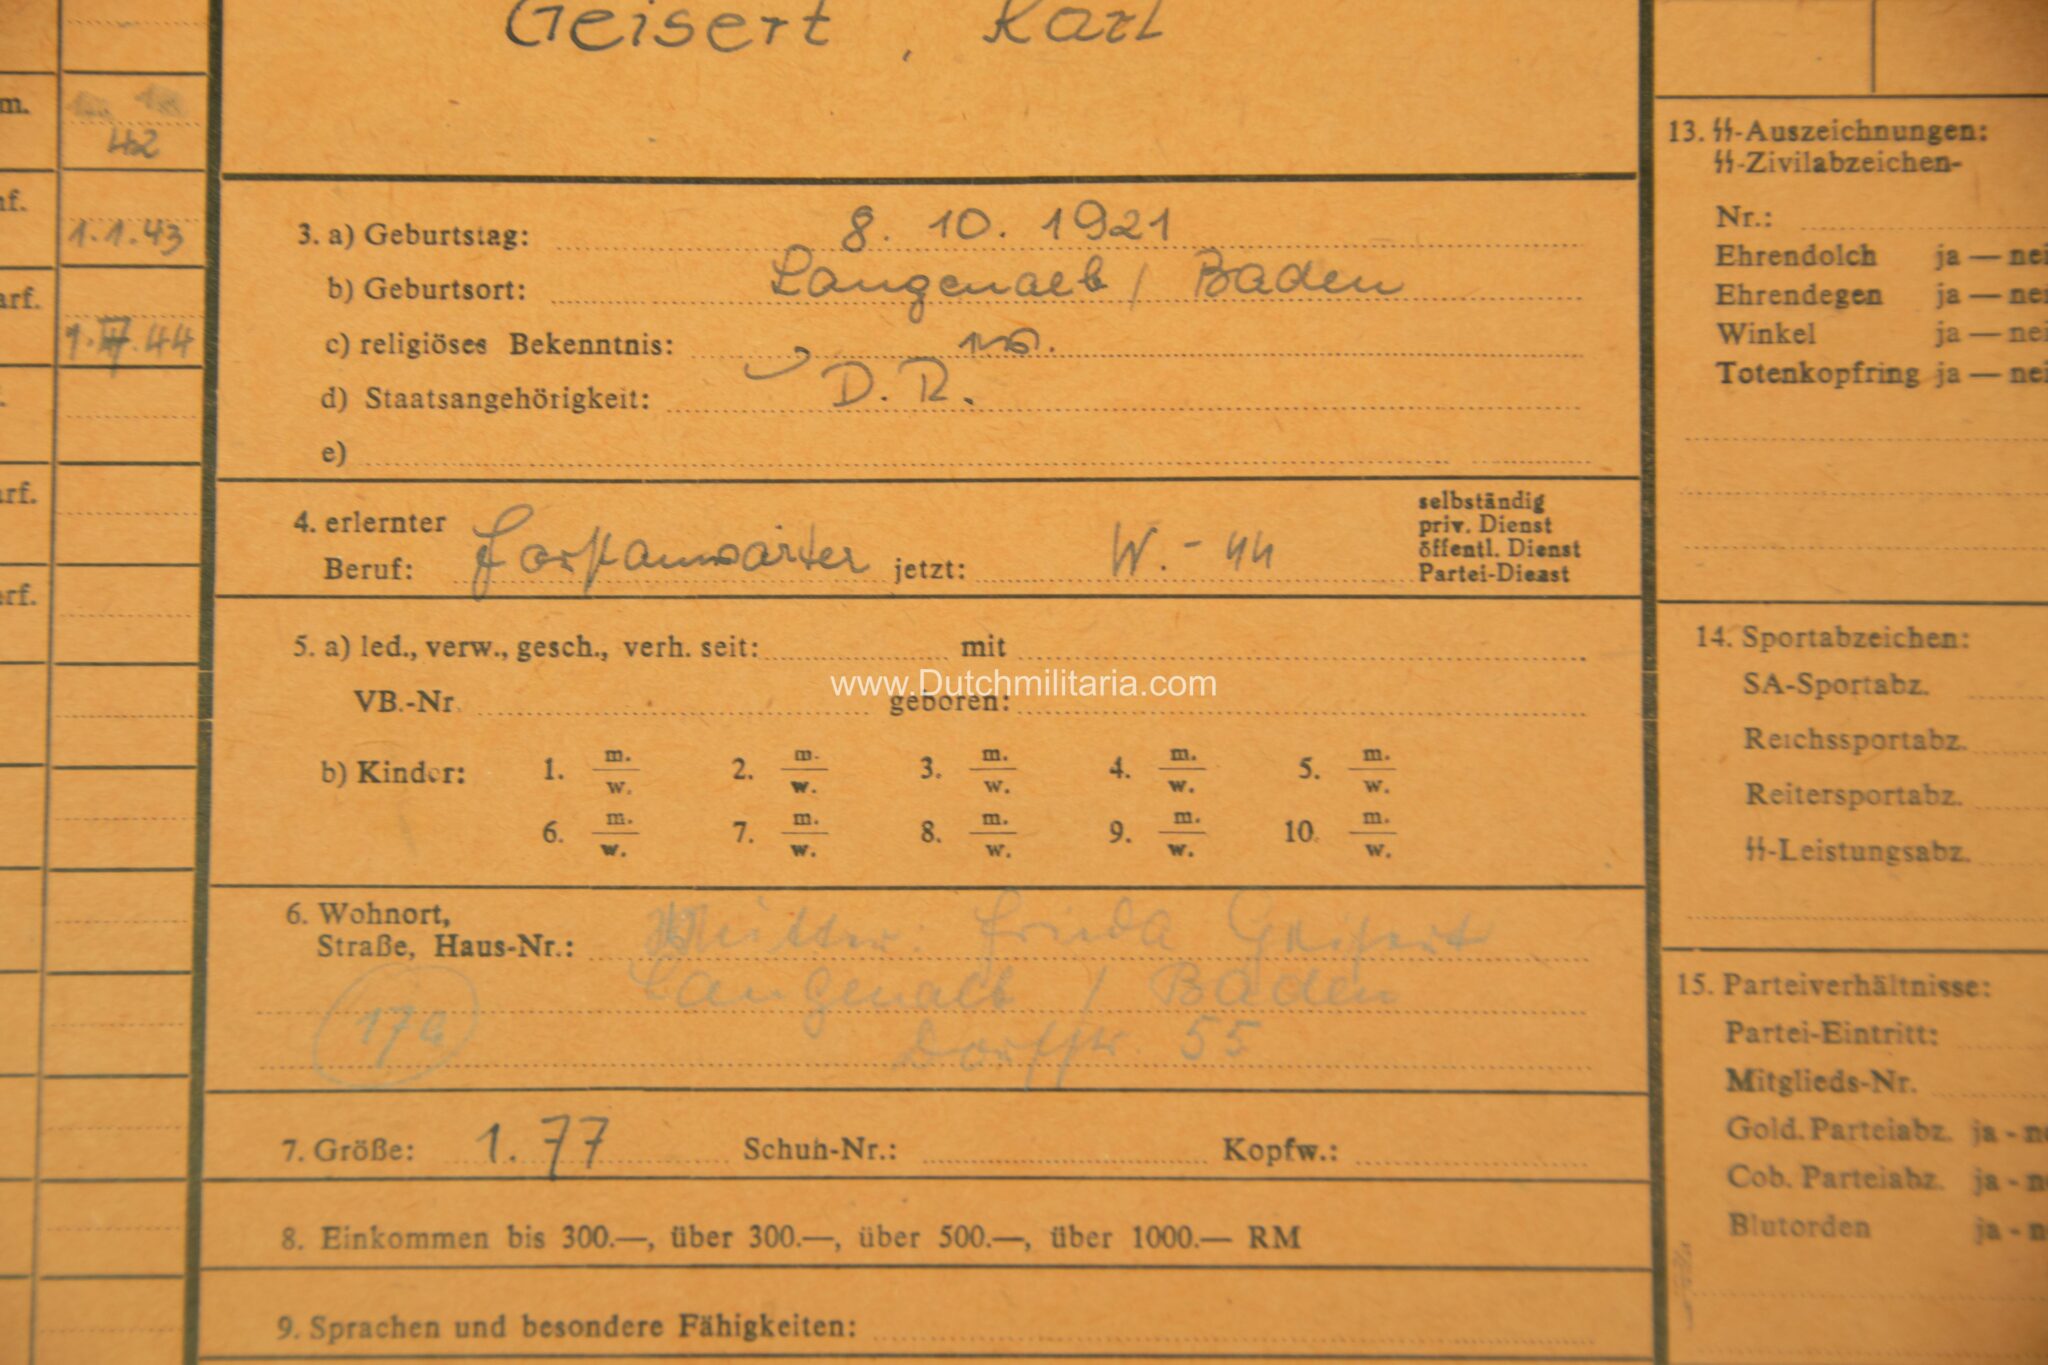 Geisert, Karl
m.
42
nf.
1.1.43
arf.
44
arf.
erf.
3. a) Geburtstag: 8. 10. 1921
b) Geburtsort: Langenalb / Baden
c) religiöses Bekenntnis:
d) Staatsangehörigkeit: D. R.
e)
4. erlernter
Beruf: Forstanwärter jetzt: W. - ᛋᛋ
selbständig
priv. Dienst
öffentl. Dienst
Partei-Dienst
5. a) led., verw., gesch., verh. seit: mit
www.Dutchmilitaria.com
VB.-Nr. geboren:
b) Kinder: 1. m. w. 2. m. w. 3. m. w. 4. m. w. 5. m. w.
6. m. w. 7. m. w. 8. m. w. 9. m. w. 10. m. w.
6. Wohnort,
Straße, Haus-Nr.: Mutter: Frieda Geisert
Langenalb / Baden
17a
Dorfstr. 55
7. Größe: 1.77 Schuh-Nr.: Kopfw.:
8. Einkommen bis 300.—, über 300.—, über 500.—, über 1000.— RM
9. Sprachen und besondere Fähigkeiten:
13. ᛋᛋ-Auszeichnungen:
ᛋᛋ-Zivilabzeichen-
Nr.:
Ehrendolch ja — nei
Ehrendegen ja — nei
Winkel ja — nei
Totenkopfring ja — nei
14. Sportabzeichen:
SA-Sportabz.
Reichssportabz.
Reitersportabz.
ᛋᛋ-Leistungsabz.
15. Parteiverhältnisse:
Partei-Eintritt:
Mitglieds-Nr.
Gold. Parteiabz. ja - ne
Cob. Parteiabz. ja - n
Blutorden ja - n